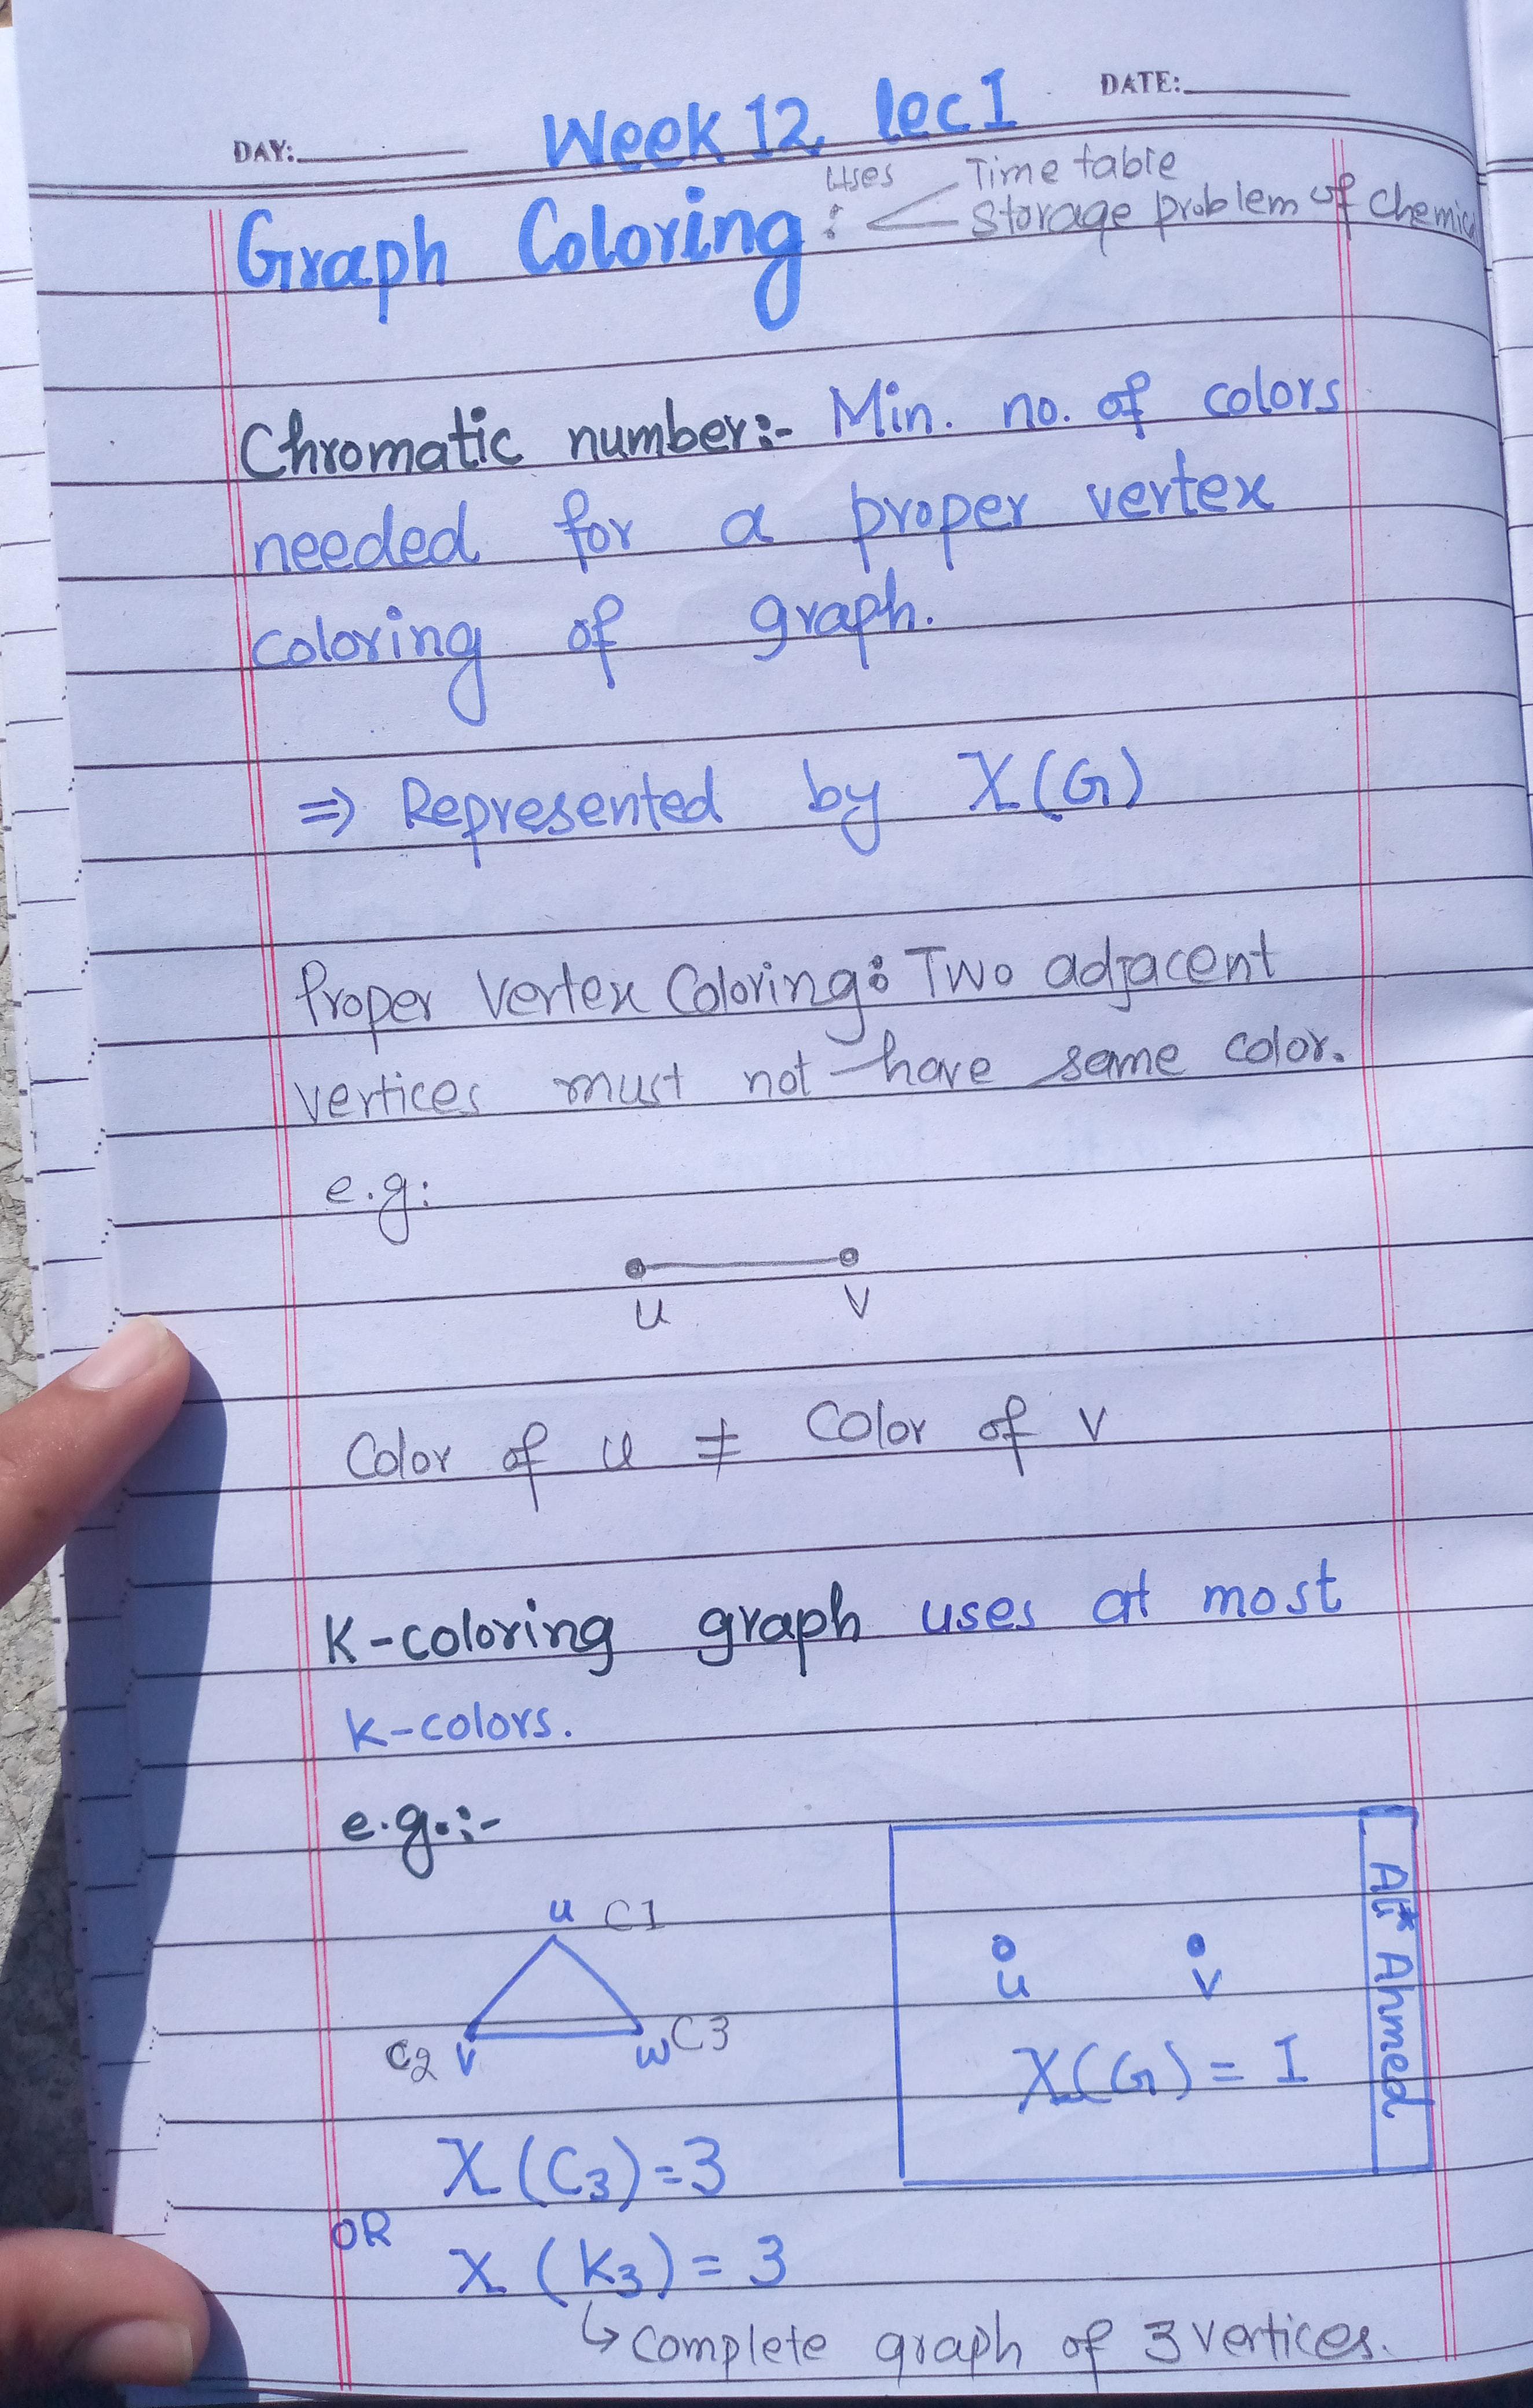 DATE:
Week 12 lec I
DAY:
Uses
Time table
Graph Coloring :
Storage problem of chemical
Chromatic number:- Min. no. of colors
needed for a proper vertex
coloring of graph.
=> Represented by X(G)
Proper Vertex Coloring: Two adjacent
vertices must not have same color.
e.g:
u v
Color of u ≠ Color of v
K-coloring graph uses at most
K-colors.
e.g.:-
u C1
C2 v w C3
u v
X(G) = I
Ali* Ahmed
X (C3) = 3
OR
X (K3) = 3
↳ complete graph of 3 vertices.